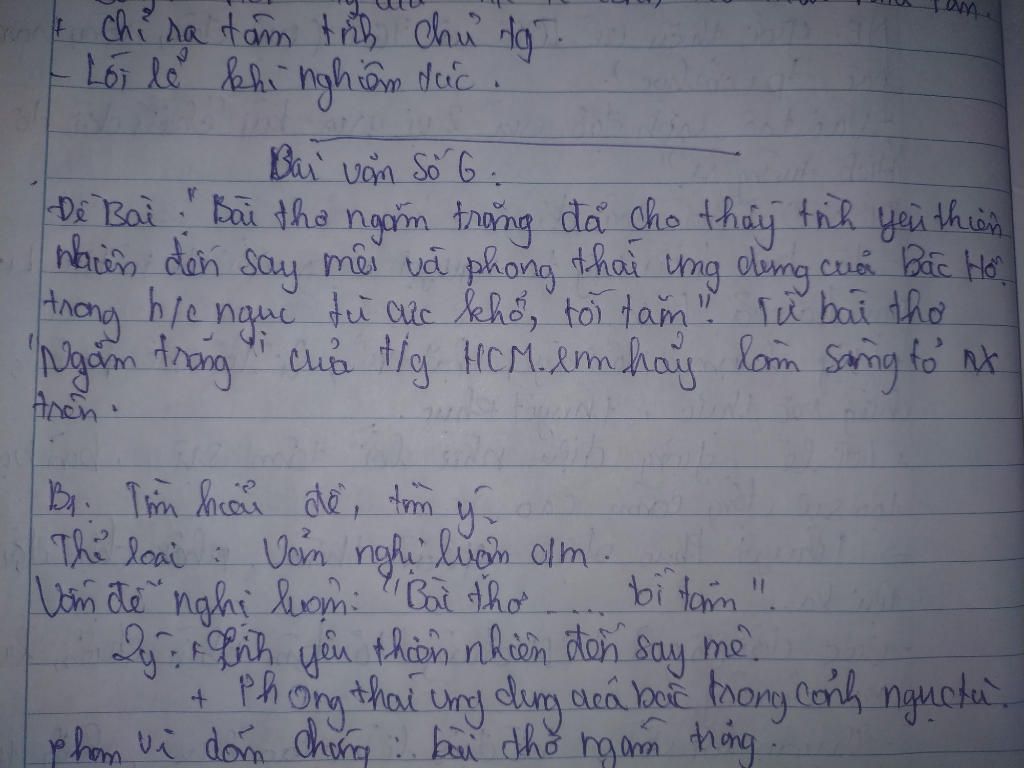 + Chỉ ra tâm tình chủ tg.
- Lời lẽ khi nghiêm túc.
Bài văn số 6:
Đề Bài: "Bài thơ ngắm trăng đã cho thấy tình yêu thiên
nhiên đến say mê và phong thái ung dung của Bác Hồ
trong h/c ngục tù cực khổ, tối tăm". Từ bài thơ
"Ngắm trăng" của t/g HCM. em hãy làm sáng tỏ nx
trên.
B1: Tìm hiểu đề, tìm ý
Thể loại: Văn nghị luận c/m.
Vấn đề nghị luận: "Bài thơ .... tối tăm".
2 ý: + Tình yêu thiên nhiên đến say mê.
+ Phong thái ung dung của bác trong cảnh ngục tù.
phạm vi dẫn chứng: bài thơ ngắm trăng.